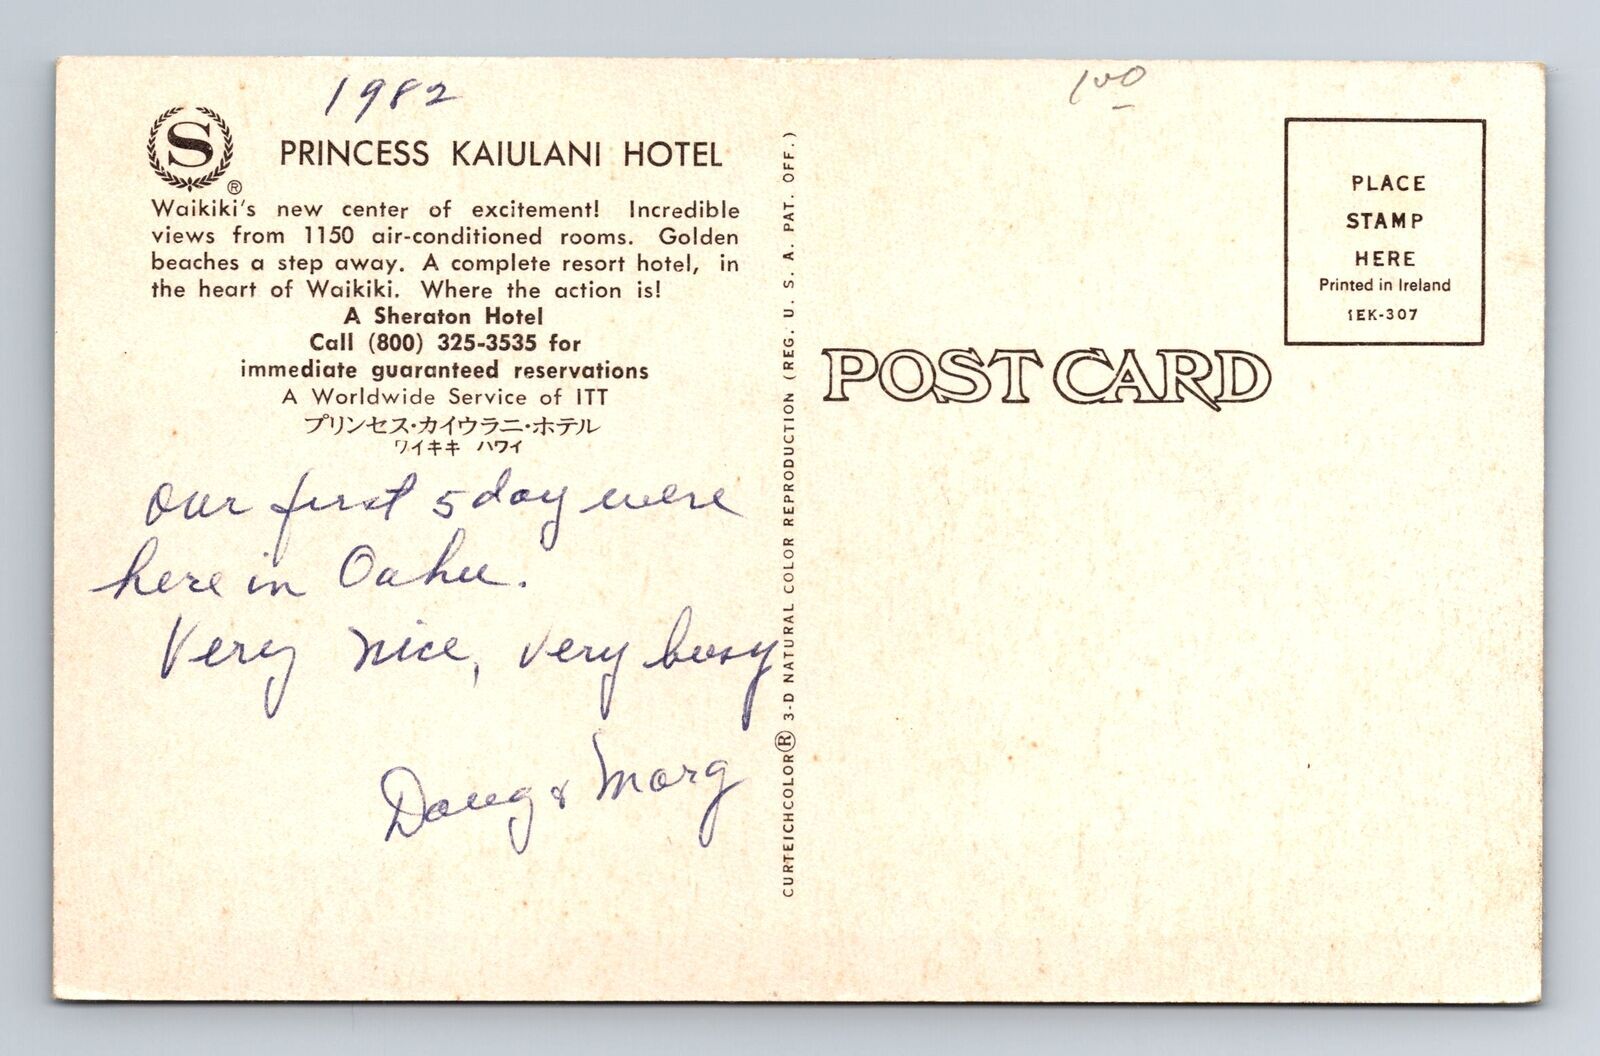 1982
100
S
®
PRINCESS KAIULANI HOTEL
Waikiki's new center of excitement! Incredible
views from 1150 air-conditioned rooms. Golden
beaches a step away. A complete resort hotel, in
the heart of Waikiki. Where the action is!
A Sheraton Hotel
Call (800) 325-3535 for
immediate guaranteed reservations
A Worldwide Service of ITT
プリンセス・カイウラニ・ホテル
ワイキキ ハワイ
Our first 5 day were
here in Oahu.
Very nice, very busy
Doug & Marg
CURTEICHCOLOR® 3-D NATURAL COLOR REPRODUCTION (REG. U. S. A. PAT. OFF.)
POST CARD
PLACE
STAMP
HERE
Printed in Ireland
1EK-307